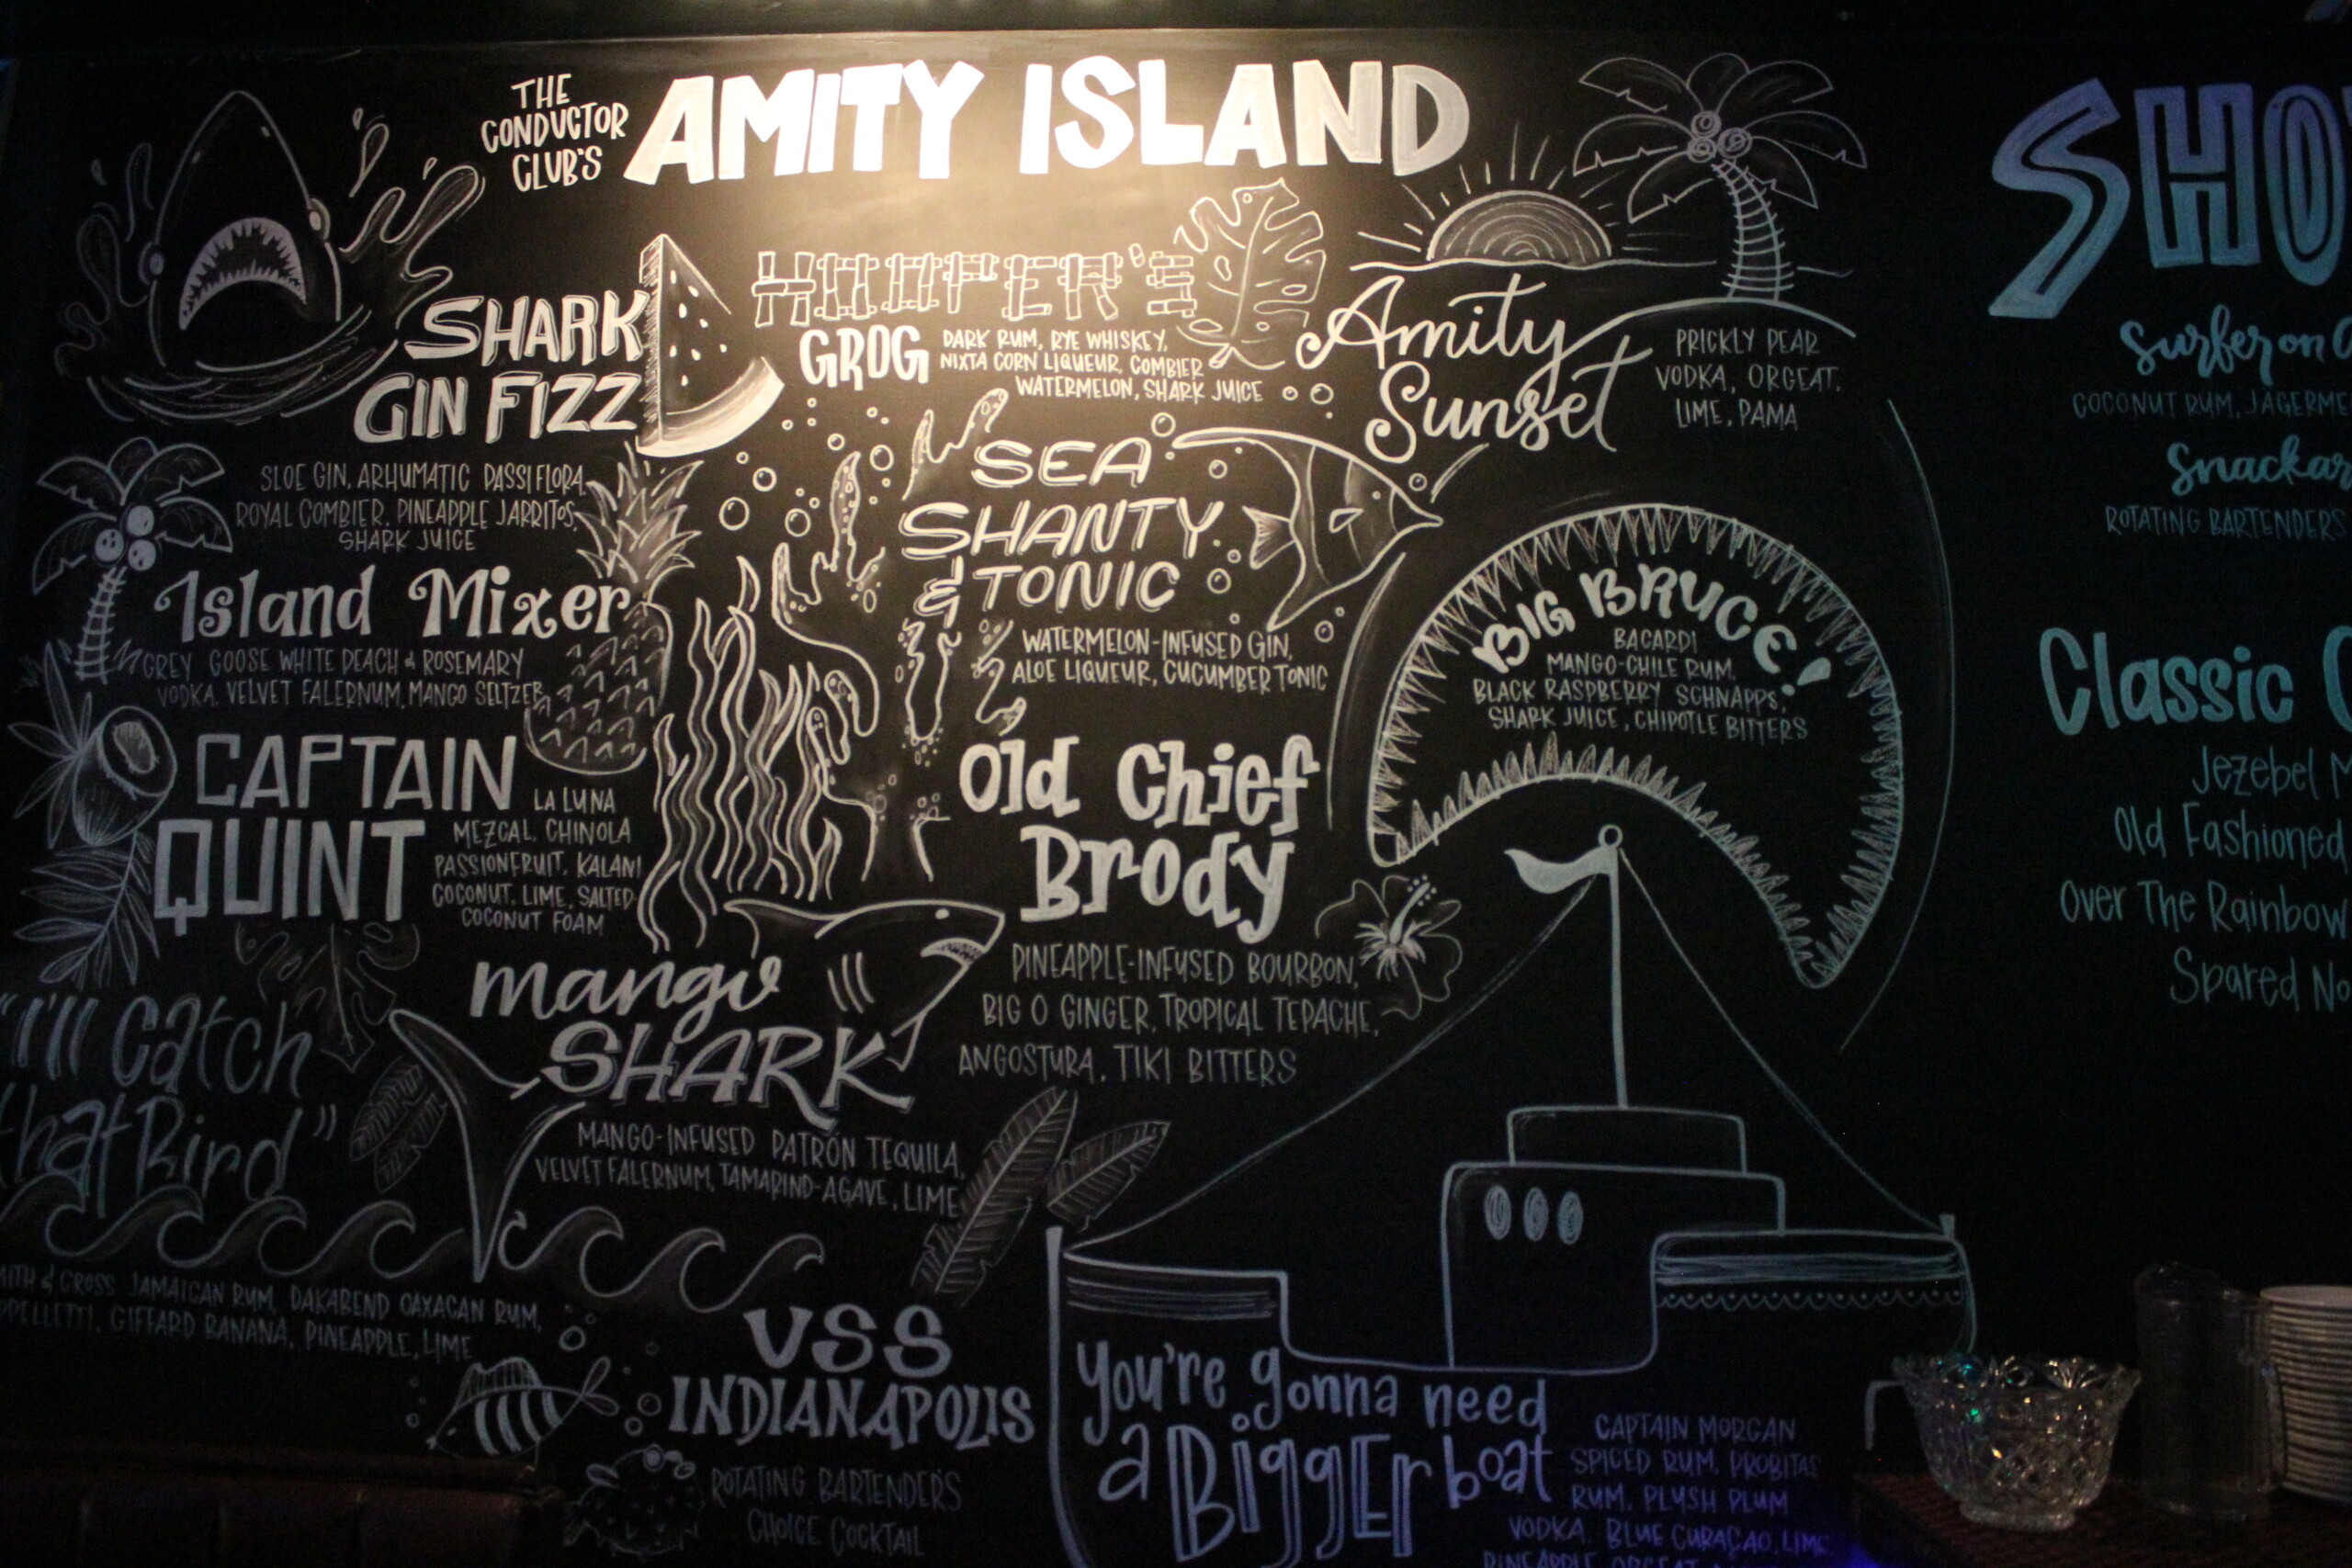 THE
CONDUCTOR
CLUB'S
AMITY ISLAND
SHARK
GIN FIZZ
SLOE GIN, ARHUMATIC PASSIFLORA,
ROYAL COMBIER, PINEAPPLE JARRITOS,
SHARK JUICE
HOOPER'S
GROG
DARK RUM, RYE WHISKEY,
NIXTA CORN LIQUEUR, COMBIER
WATERMELON, SHARK JUICE
Amity
Sunset
PRICKLY PEAR
VODKA, ORGEAT,
LIME, PAMA
Island Mixer
GREY GOOSE WHITE PEACH & ROSEMARY
VODKA, VELVET FALERNUM, MANGO SELTZER
SEA
SHANTY
& TONIC
WATERMELON-INFUSED GIN,
ALOE LIQUEUR, CUCUMBER TONIC
BIG BRUCE!
BACARDI
MANGO-CHILE RUM,
BLACK RASPBERRY SCHNAPPS,
SHARK JUICE, CHIPOTLE BITTERS
CAPTAIN
QUINT
LA LUNA
MEZCAL, CHINOLA
PASSIONFRUIT, KALANI
COCONUT, LIME, SALTED
COCONUT FOAM
Old Chief
Brody
PINEAPPLE-INFUSED BOURBON,
BIG O GINGER, TROPICAL TEPACHE,
ANGOSTURA, TIKI BITTERS
mango
SHARK
MANGO-INFUSED PATRÓN TEQUILA,
VELVET FALERNUM, TAMARIND-AGAVE, LIME
"I'll Catch
that Bird"
& CROSS JAMAICAN RUM, DAKABEND OAXACAN RUM,
GIFFARD BANANA, PINEAPPLE, LIME
USS
INDIANAPOLIS
ROTATING BARTENDER'S
CHOICE COCKTAIL
You're gonna need
a BiggEr boat
CAPTAIN MORGAN
SPICED RUM, PROBITAS
RUM, PLUSH PLUM
VODKA, BLUE CURAÇAO, LIME,
PINEAPPLE, ORGEAT
SHO
Surfer on
COCONUT RUM,
ROTATING BARTENDERS
Classic
Jezebel
Old Fashioned
Over The Rainbow
Spared No